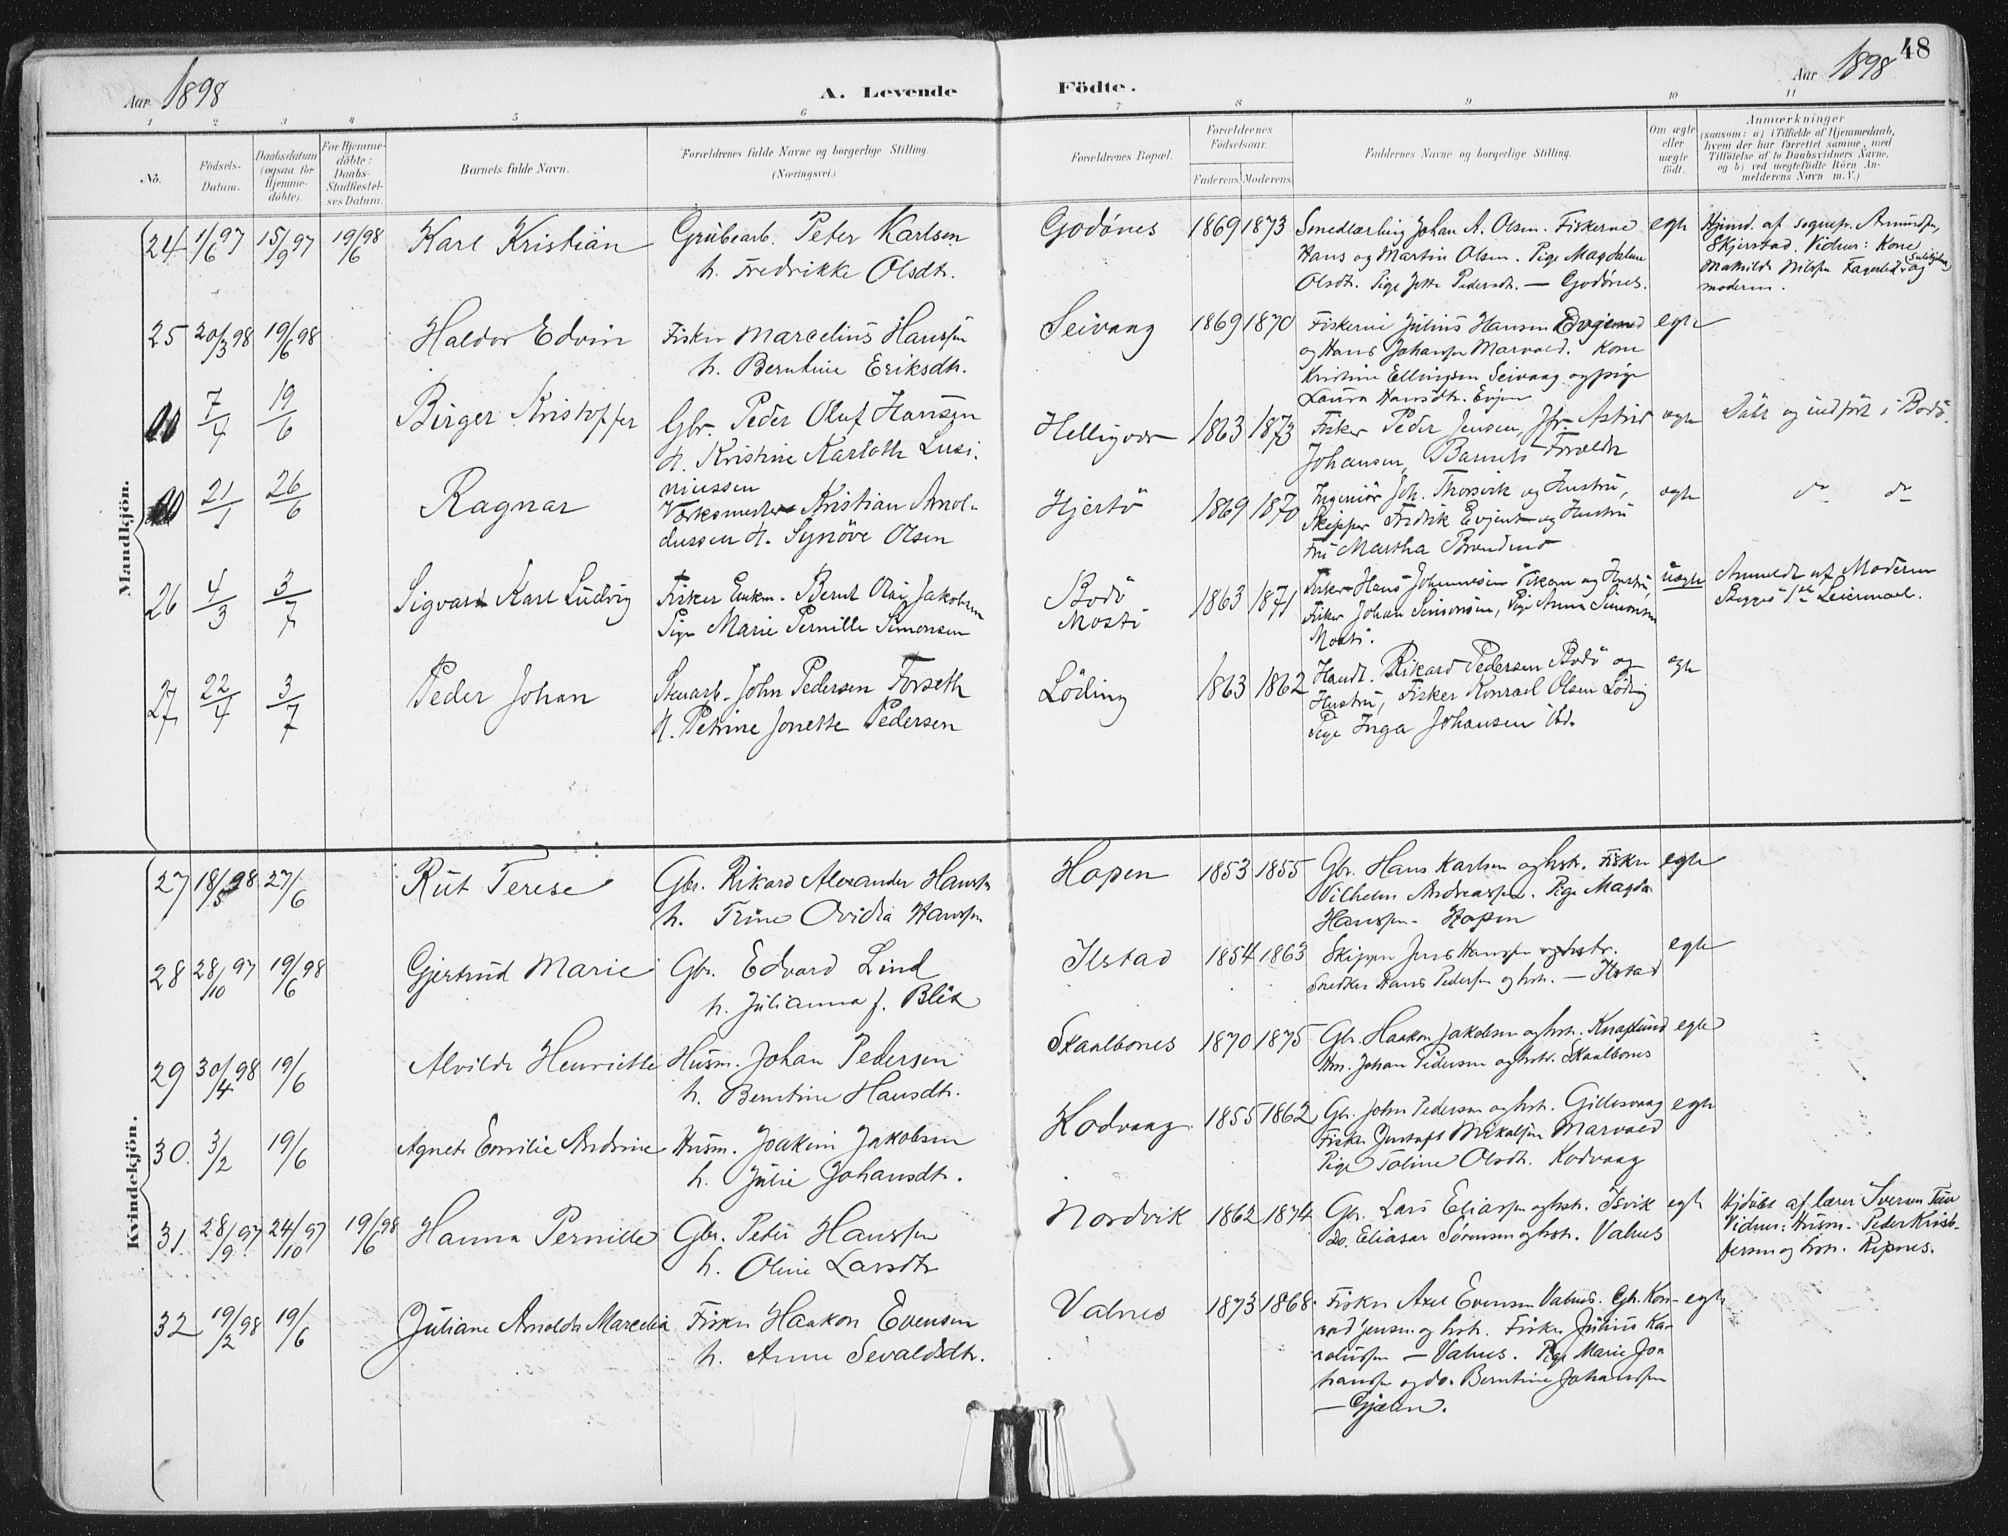 Aar 1898
A. Levende
Födte.
Aar 1898
48
1 2 3 4 5 6 7 8 9 10 11
No.
Födsels-Datum.
Daabsdatum (ogsaa for Hjemmedöbte).
For Hjemmedöbte: Daabs-Stadfæstelses Datum.
Barnets fulde Navn.
Forældrenes fulde Navne og borgerlige Stilling. (Næringsvei.)
Forældrenes Bopæl.
Forældrenes Födselsaar.
Faderens. Moderens.
Faddernes Navne og borgerlige Stilling.
Om ægte eller uægte födt.
Anmærkninger
(saasom: a) i Tilfælde af Hjemmedaab,
hvem der har forrettet samme, med
Tilföielse af to Daabsvidners Navne,
og b) ved uægtefödte Börn An-
melderens Navn m. V.)
Mandkjön.
24 1/6 97 15/9 97 19/6 98 Karl Kristian
Grubearb. Peter Karlsen
h. Fredrikke Olsdtr.
Godønes 1869 1873
Smedlærling Johan A. Olsen. Fiskerne
Hans og Martin Olsen. Pige Magdalene
Olsdtr. Pige Jette Pedersdtr. — Godønes.
egte
Hjemd. af sognepr. Amundsen,
Skjerstad. Vidner: Kone
Mathilde Nilssen Fagerli og
moderen.
25 20/3 98 19/6 98 Haldor Edvin
Fisker Marcelius Hanssen
h. Berntine Eriksdtr.
Seivaag 1869 1870
Fiskerne Julius Hansen
og Hans Johansen Marvold. Kone
Kristine Ellingsen Seivaag og pige
Laura Hansdtr. Evjen
egte
7/4 19/6 Birger Kristoffer
Gbr. Peder Oluf Hansen
H. Kristine Karloth Lusi-
niussen
Helligvær 1863 1873
Fisker Peder Jensen, Jfr. Astrid
Johansen, Barnets Forældre
ægte
Döbt og indfört i Bodö.
21/1 26/6 Ragnar
Værksmester Kristian Arnol-
dussen H. Synöve Olsen
Hjertö 1869 1870
Ingeniör Joh. Thorsvik og Hustru,
Skipper Fredrik Evjent og Hustru
Fru Martha
ægte
do do
26 4/3 3/7 Sigvart Karl Ludvig
Fisker Enkm. Bernt Olai Jakobsen
Pige Marie Pernille Simonsen
Bodö
Mosti
1863 1871
Fisker Hans Johannesen og Hustru,
Fisker Johan Simonsen, Pige Anna Simonsen
Mosti.
uægte
Anmeldt af Moderen
Begges 1ste Leiermaal.
27 22/4 3/7 Peder Johan
Stenarb. John Pedersen Forseth
H. Petrine Jonette Pedersen
Löding 1863 1862
Handl. Rikard Pedersen Bodö og
Hustru, Fisker Konrad Olsen Löding
Pige Inga Johansen ibd.
egte
Kvindekjön.
27 18/5 98 27/6 Rut Terese
Gbr. Rikard Alexander Hanssen
h. Trine Ovidia Hanssen
Hopen 1853 1855
Gbr. Hans Karlsen og hstr. Fisker
Vilhelm Andreassen. Pige Magda
Hanssen. Hopen
egte
28 28/10 97 19/6 98 Gjertrud Marie
Gbr. Edvard Lind
h. Julianna f. Blix
Ilstad 1854 1863
Skipper Jens Hanssen og hstr.
Snedker Hans Pedersen og hstr. — Ilstad
egte
29 30/4 98 19/6 Alvilde Henriette
Husm. Johan Pedersen
h. Berntine Hansdtr.
Skaalbones 1870 1875
Gbr. Haakon Jakobsen og hstr. Knaplund
Hm. Johan Pedersen og hstr. Skaalbones
egte
30. 3/2 19/6 Agnete Emilie Andrine
Husm. Joakim Jakobsen
h. Julie Johansdtr.
Kodvaag 1855 1862
Gbr. John Pedersen og hstr. Gillesvaag
Fisker Gustaf Mikalsen Marvold
Pige Taline Olsdtr. Kodvaag
egte
31. 28/9 97 24/10 97 19/6 98 Hanna Pernille
Gbr. Peter Hanssen
h. Oline Larsdtr
Nordvik 1862 1874
Gbr. Lars Eliassen og hstr. Isvik
Do. Eliasar Sørensen og hstr. Valnes
egte
Hjdöbt af lærer Iversen
Vidner: Husm. Peder Krist-
fersen og hstr. Ripnes.
32 19/2 98 19/6 Juliane Arnolda Marcelia
Fisker Haakon Evensen
h. Anne Sevaldsdtr.
Valnes 1873 1868
Fisker Axel Evensen Valnes. Gbr. Kon-
rad Jensen og hstr. Fisker Julius Ka-
roliussen — Valnes. Pige Marie Jo-
hanssen og do. Berntine Johanssen
— Gjælen.
egte